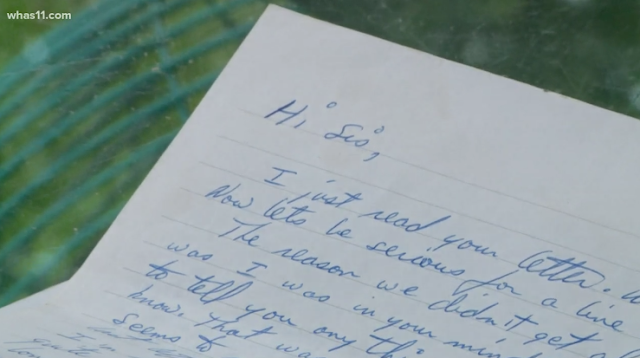 whas11.com
Hi Sis,
I just read your letter.
Now lets be serious for a line
The reason we didn't get
was I was in your min
to tell you any thi
know. That wa
Seems to